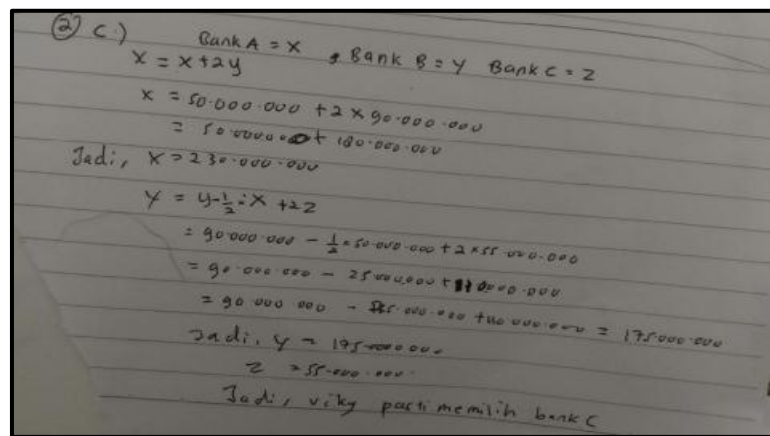 ② c.) Bank A = X, Bank B = Y Bank C = Z
X = X + 2y
X = 50.000.000 + 2 x 90.000.000
= 50.000.000 + 180.000.000
Jadi, X = 230.000.000
Y = y - 1/2 · X + 2Z
= 90.000.000 - 1/2 x 50.000.000 + 2 x 55.000.000
= 90.000.000 - 25.000.000 + 110.000.000
= 90.000.000 - 25.000.000 + 110.000.000 = 175.000.000
Jadi, y = 175.000.000
Z = 55.000.000
Jadi, viky pasti memilih bank C